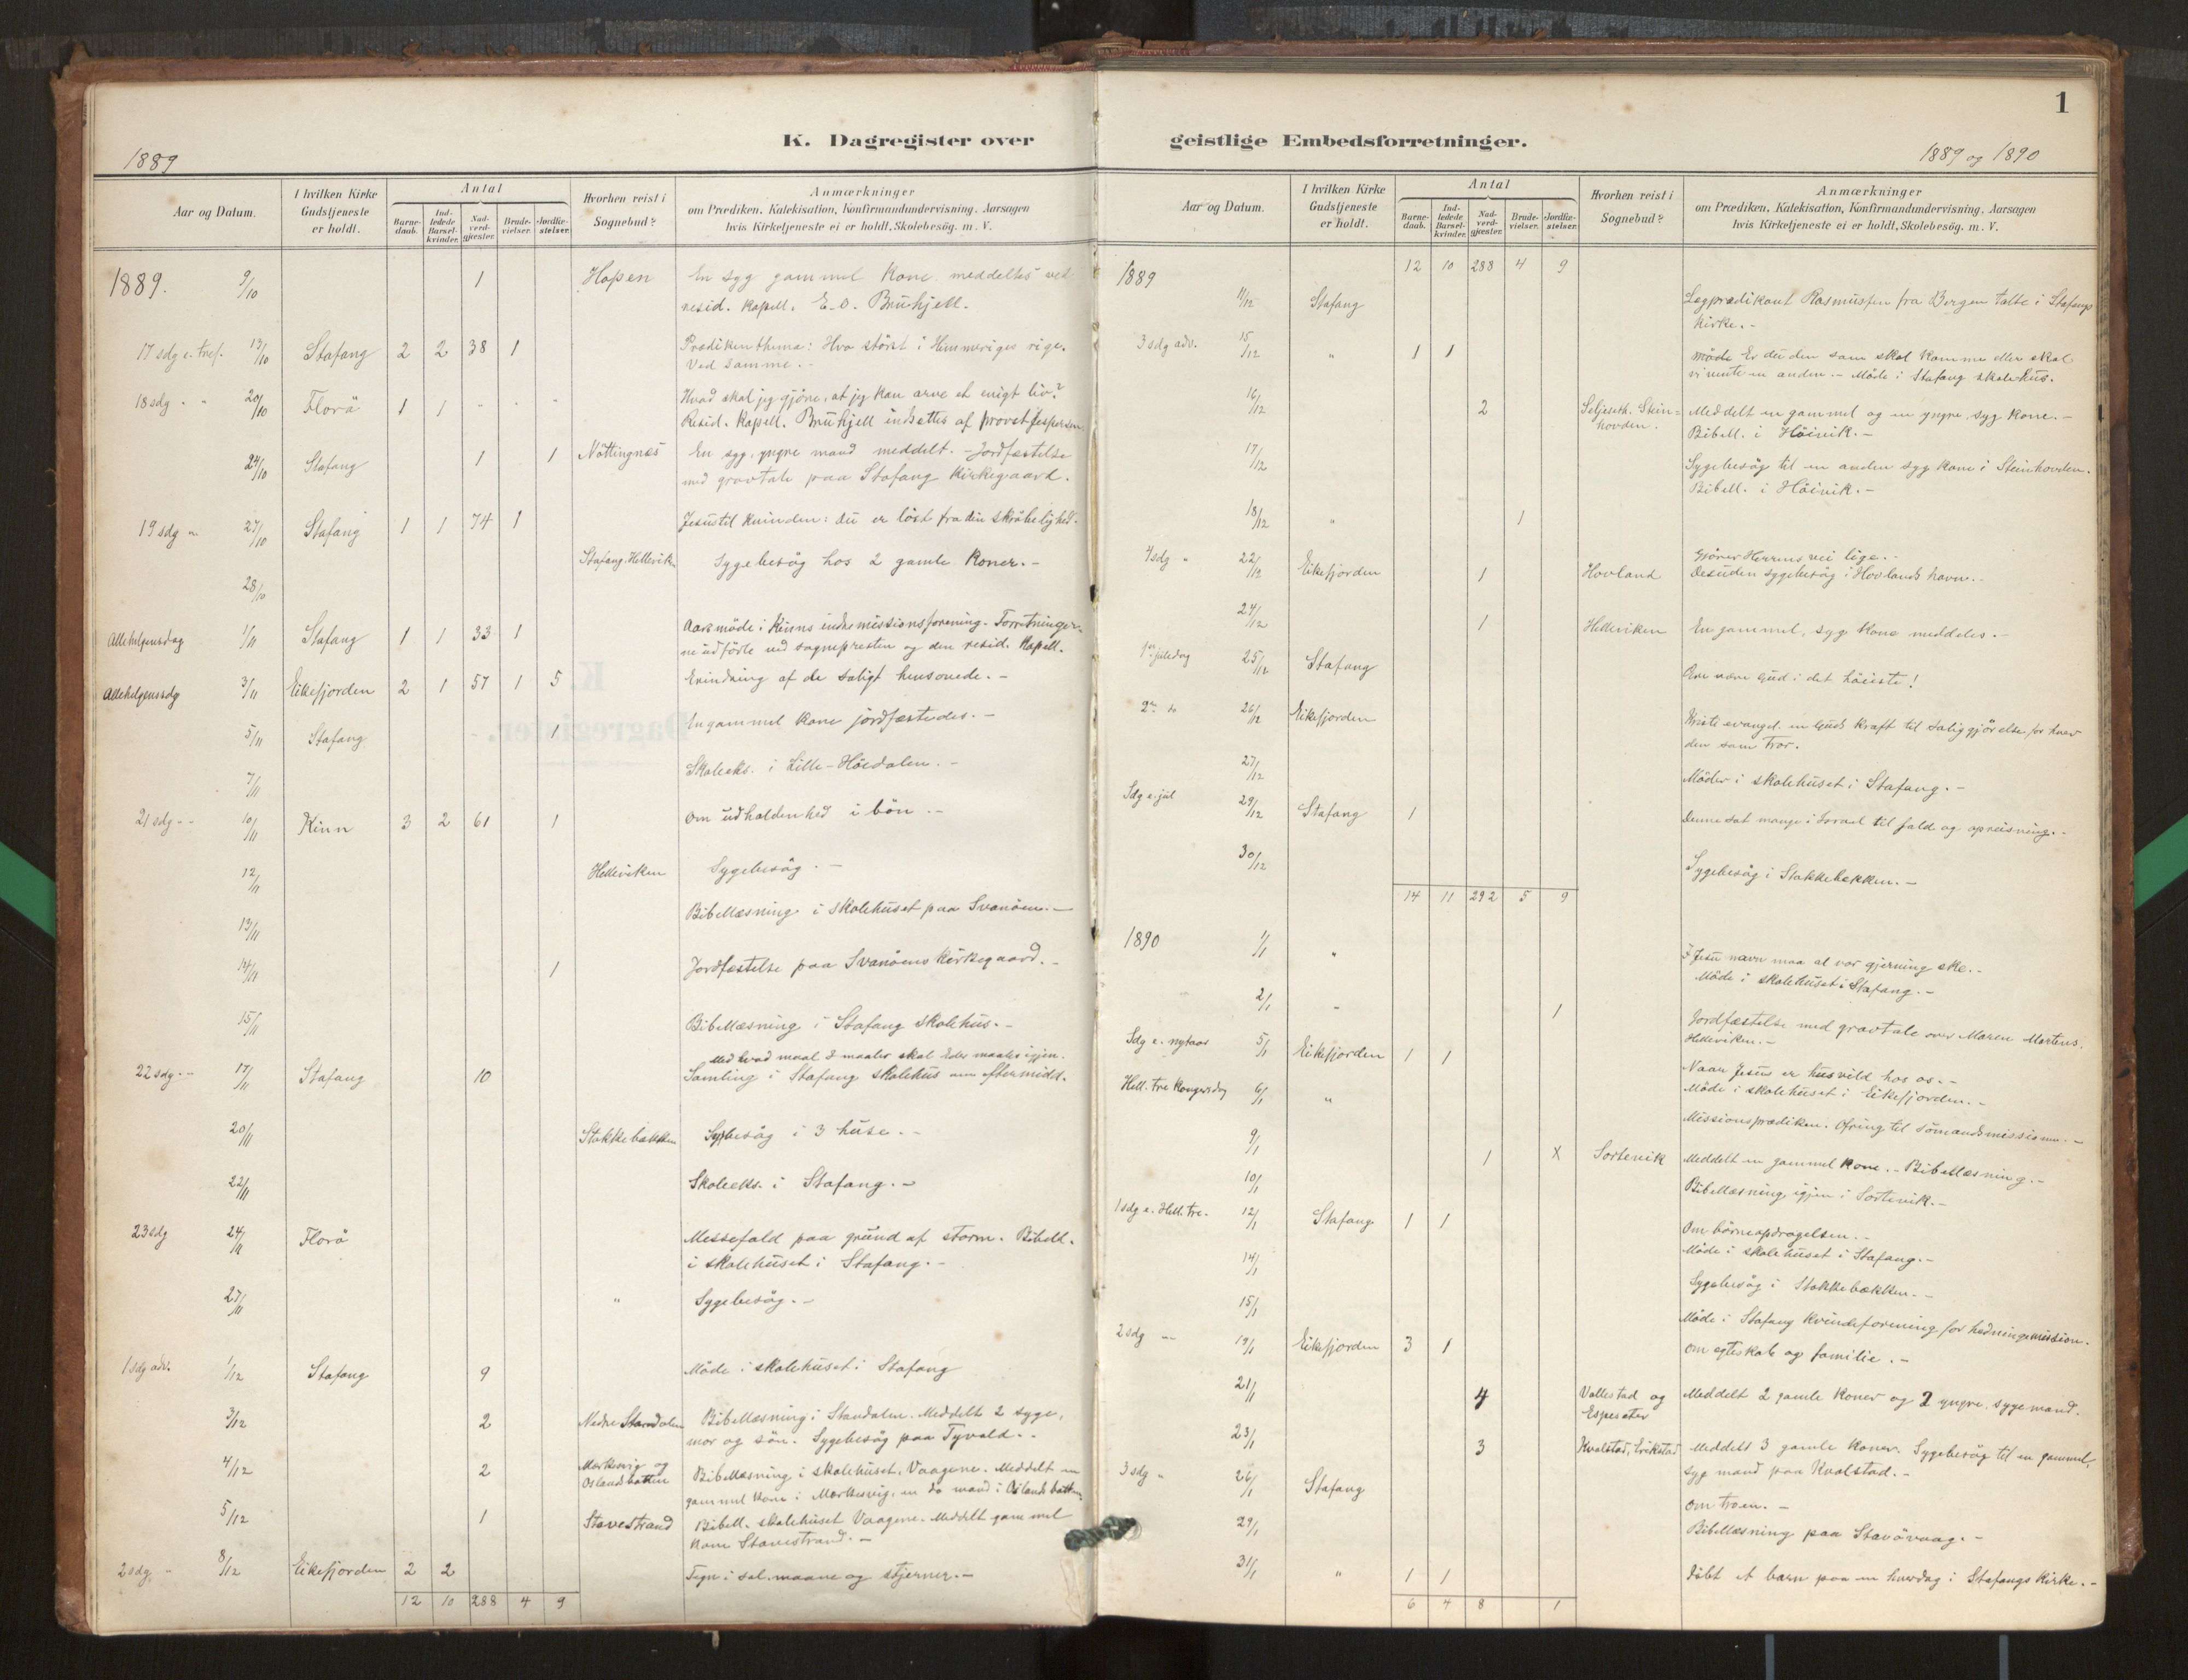 K. Dagregister over
1889
Aar og Datum.
I hvilken Kirke Gudstjeneste er holdt.
Antal
Barne-daab.
Ind-ledede Barsel-kvinder.
Nad-verd-gjæster.
Brude-vielser.
Jordfæ-stelser.
Hvorhen reist i Sognebud?
Anmærkninger
om Prædiken, Katekisation, Konfirmandundervisning, Aarsagen
hvis Kirketjeneste ei er holdt, Skolebesög. m. V.
1889. 9/10 1 Hopen En syg gammel Kone meddeltes ved
resid. Kapell. E. O. Bruhjell.
17 sdg e. tref. 13/10 Stafang 2 2 38 1 Prædikenthema: Hvo störst i Himmeriges rige.
Ved Samme.-
18 sdg " " 20/10 Florö 1 1 - - - Hvad skal jeg gjöre, at jeg kan arve et evigt liv?
Resid. Kapell. Bruhjell indsattes af provst Jespersen
24/10 Stafang 1 1 Nöttingnæs En syg, yngre mand meddelt. - Jordfæstelse
med gravtale paa Stafang Kirkegaard.
19 sdg " 27/10 Stafang 1 1 74 1 Jesus til Kvinden: du er löst fra din skröbelighed.
28/10 Stafang, Helleviken Sygebesög hos 2 gamle Koner.-
Allehelgensdag 1/11 Stafang 1 1 33 1 Aarsmöde i Kinns indremissionsforening. Forretninger-
ne udförte ved sognepresten og den resid. Kapell.
Allehelgenssdg 3/11 Eikefjorden 2 1 57 1 5 Erindring af de saligt hensovede.-
5/11 Stafang 1 En gammel Kone jordfæstedes.-
7/11 Skoleeks. i Lille-Höidalen.-
21 sdg - - 10/11 Kinn 3 2 61 1 Om udholdenhed i bön.-
12/11 Helleviken Sygebesög.-
13/11 Bibellæsning i skolehuset paa Svanöen.-
14/11 1 Jordfæstelse paa Svanöens Kirkegaard.-
15/11 Bibellæsning i Stafang skolehus.-
22 sdg - - 17/11 Stafang 10 Med hvad maal I maaler skal Eder maales igjen.
Samling i Stafang skolehus om eftermidd.
20/11 Stokkebækken Sygebesög i 3 huse.-
22/11 Skoleeks. i Stafang.-
23 sdg 24/11 Florö Messefald paa grund af storm. Bibell.
i skolehuset i Stafang.-
27/11 " Sygebesög.-
1 sdg adv. 1/12 Stafang 9 Möde i skolehuset i Stafang
3/12 2 Nedre Standalen Bibellæsning i Standalen. Meddelt 2 syge,
mor og sön. Sygebesög paa Tyvold.-
4/12 2 Markevig og Oslandsbotten Bibellæsning i skolehuset, Vaagene. Meddelt en
gammel Kone i Markevig, en do mand i Oslandsbotten
5/12 1 Stavestrand Bibell. skolehuset Vaagene. Meddelt gammel
Kone Stavestrand.-
2 sdg " 8/12 Eikefjorden 2 2 Tegn i sol, maane og stjerner.-
12 10 288 4 9
1
geistlige Embedsforretninger.
1889 og 1890
Aar og Datum.
I hvilken Kirke Gudstjeneste er holdt.
Antal
Barne-daab.
Ind-ledede Barsel-kvinder.
Nad-verd-gjæster.
Brude-vielser.
Jordfæ-stelser.
Hvorhen reist i Sognebud?
Anmærkninger
om Prædiken, Katekisation, Konfirmandundervisning, Aarsagen
hvis Kirketjeneste ei er holdt, Skolebesög. m. V.
1889 12 10 288 4 9
11/12 Stafang Lægprædikant Rasmussen fra Bergen talte i Stafangs
Kirke.-
3 sdg adv. 15/12 " 1 1 Er du den som skal Komme eller skal
vi vente en anden.- Möde i Stafang skolehus.
16/12 2 Seljeseth. Stein=hovden. Meddelt en gammel og en yngre, syg Kone.-
Bibell. i Höivik.-
17/12 Sygebesög til en anden syg Kone i Steinhovden.
Bibell. i Höivik.-
18/12 " 1
4 sdg " 22/12 Eikefjorden 1 Hovland Gjörer Herrens vei lige.-
Desuden sygebesög i Hovlands havn.-
24/12 1 Helleviken En gammel, syg Kone meddeles.-
1ste juledag 25/12 Stafang Ære være Gud i det höieste!
2den do 26/12 Eikefjorden Kristi evangel. en Guds Kraft til saliggjörelse for hver
den som tror.
27/12 Möder i skolehuset i Stafang.-
Sdg e. jul 29/12 Stafang 1 Denne sat mange i Israel til fald og opreisning.-
30/12 Sygebesög i Stokkebækken.-
14 11 292 5 9
1890 1/1 " I Jesu navn maa al vor gjerning ske.-
Möde i skolehuset i Stafang.-
2/1 " 1 Jordfæstelse med gravtale over Maren Martens,
Helleviken.-
Sdg e. nytaar 5/1 Eikefjorden 1 1 Naar Jesus er husvild hos os.-
Möde i skolehuset i Eikefjorden.-
Hell. tre Kongersdag 6/1 " Missionsprædiken. Ofring til sömandsmissionen.-
9/1 1 X Sortevik Meddelt en gammel Kone.- Bibellæsning.-
10/1 Bibellæsning igjen i Sortevik.-
1 sdg e. Hell. tre. 12/1 Stafang 1 1 Om börneopdragelsen.-
Möde i skolehuset i Stafang.-
14/1 Sygebesög i Stokkebækken.-
15/1 Möde i Stafang Kvindeforening for hedningemission.
2 sdg -- 19/1 Eikefjorden 3 1 Om egteskab og familie.-
21/1 4 Vallestad og Espeseter Meddelt 2 gamle Koner og 2 yngre, syge mænd.
23/1 3 Kvalstad, Erikstad Meddelt 3 gamle Koner. Sygebesög til en gammel,
syg mand paa Kvalstad.-
3 sdg " 26/1 Stafang Om troen.-
29/1 Bibellæsning paa Stavövaag.-
31/1 " 1 1 Döbt et barn paa en hverdag i Stafangs Kirke.-
6 4 8 1